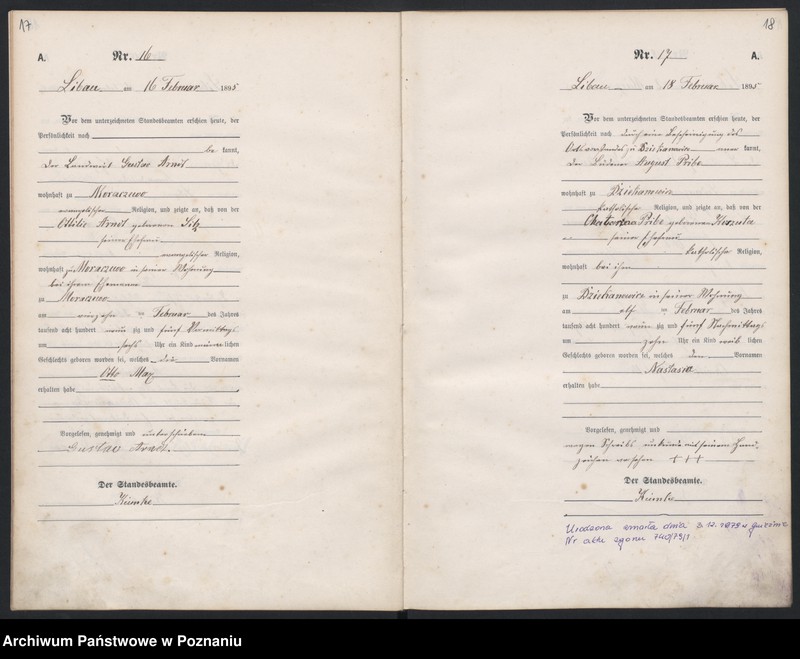 17
A.
Nr. 16
Libau am 16 Februar 1895
Vor dem unterzeichneten Standesbeamten erschien heute, der
Persönlichkeit nach
be kannt,
der Landwirt Gustav Arndt
wohnhaft zu
evangelischer Religion, und zeigte an, daß von der
Ottilie Arndt geborenen
seiner Ehefrau
evangelischer Religion,
wohnhaft zu in seiner Wohnung
bei ihrem Ehemanne
zu
am vierzehn ten Februar des Jahres
tausend acht hundert neun zig und fünf Vormittags
um sechs Uhr ein Kind männ lichen
Geschlechts geboren worden sei, welches die Vornamen
Otto Max
erhalten habe
Vorgelesen, genehmigt und unterschrieben
Gustav Arndt.
Der Standesbeamte.
18
Nr. 17
A.
Libau am 18 Februar 1895
Vor dem unterzeichneten Standesbeamten erschien heute, der
Persönlichkeit nach durch eine Bescheinigung des
Ortsvorstandes zu Dziekanowice aner kannt,
der Büdner August Pribe
wohnhaft zu Dziekanowice
katholischer Religion, und zeigte an, daß von der
Pribe geborenen
seiner Ehefrau
katholischer Religion,
wohnhaft bei ihm
zu Dziekanowice in seiner Wohnung
am elf ten Februar des Jahres
tausend acht hundert neun zig und fünf Nachmittags
um zehn Uhr ein Kind weib lichen
Geschlechts geboren worden sei, welches den Vornamen
Nastasia
erhalten habe
Vorgelesen, genehmigt und
wegen Schreibs unkunde mit seinem Hand-
zeichen versehen + + +
Der Standesbeamte.
Urodzona zmarła dnia 3.12.1979 w Gnieźnie
Nr aktu zgonu 740/79/1
Archiwum Państwowe w Poznaniu